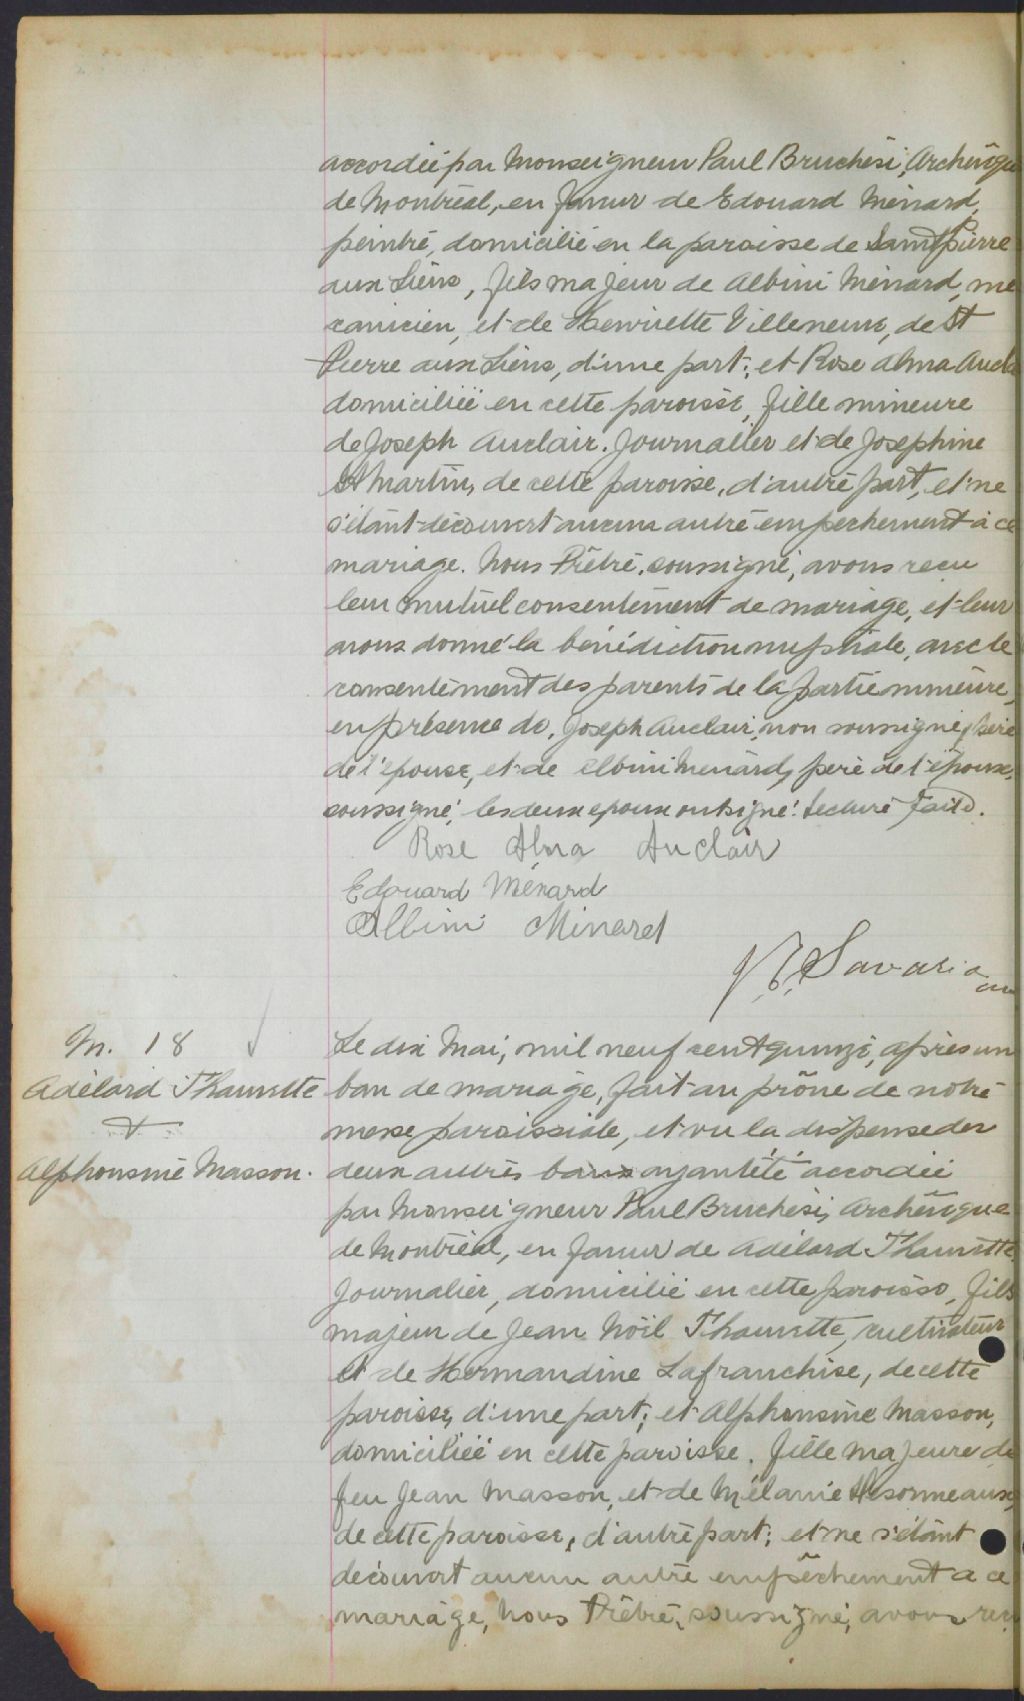 accordée par Monseigneur Paul Bruchési, Archevêque
de Montréal, en faveur de Edouard Ménard,
peintre, domicilié en la paroisse de Saint Pierre
aux Liens, fils majeur de Albini Ménard, mé
canicien, et de Henriette Villeneuve, de St
Pierre aux Liens, d'une part; et Rose Alma Aucl
domiciliée en cette paroisse, fille mineure
de Joseph Auclair. Journalier et de Josephine
St Martin, de cette paroisse, d'autre part, et ne
s'étant découvert aucun autre empechement à ce
mariage. Nous Prêtre, soussigné, avons reçu
leur mutuel consentement de mariage, et leur
avons donné la bénédiction nuptiale, avec le
consentement des parents de la partie mineure,
en présence de, Joseph Auclair, non soussigné, père
de l'épouse, et de Albini Menard, père de l'époux,
soussigné, les deux epoux ont signé. Lecture faite.
Rose Alma Auclair
Edouard Ménard
Albini Minard
Savaria
M. 18
Adélard Thauvette
&
Alphonsine Masson.
Le dix Mai, mil neuf cent quinze, après un
ban de mariage, fait au prône de notre
messe paroissiale, et vu la dispense des
deux autres bans ayant été accordée
par Monseigneur Paul Bruchési, Archevêque
de Montréal, en faveur de Adélard Thauvette,
Journalier, domicilié en cette paroisse, fils
majeur de Jean Noël Thauvette, cultivateur
et de Hermandine Lafranchise, de cette
paroisse, d'une part; et Alphonsine Masson,
domiciliée en cette paroisse. fille majeure de
feu Jean Masson, et de Mélanie
de cette paroisse, d'autre part; et ne s'étant
découvert aucun autre empêchement a ce
mariage, Nous Prêtre, soussigné, avons reçu